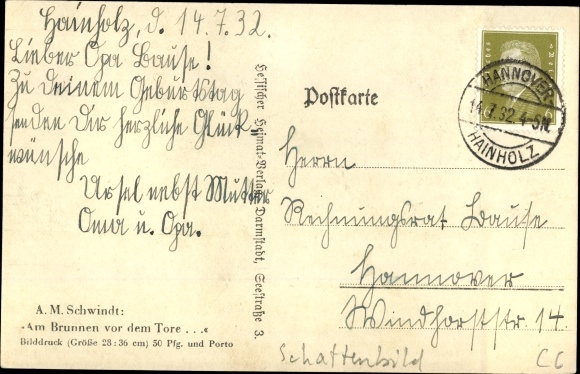 Hainholz, d. 14.7.32.
Lieber Opa Bause!
Zu deinem Geburtstag
senden Dir herzliche Glück-
wünsche
Ursel nebst Mutter
Oma u. Opa.
A. M. Schwindt:
»Am Brunnen vor dem Tore . . .«
Bilddruck (Größe 28 : 36 cm) 50 Pfg. und Porto
Hessischer Heimat-Verlag, Darmstadt, Seestraße 3.
Postkarte
HANNOVER-
14.7.32.4-5N.
HAINHOLZ
Herrn
Rechnungsrat Bause
Hannover
Windhorststr. 14.
Schattenbild
C6